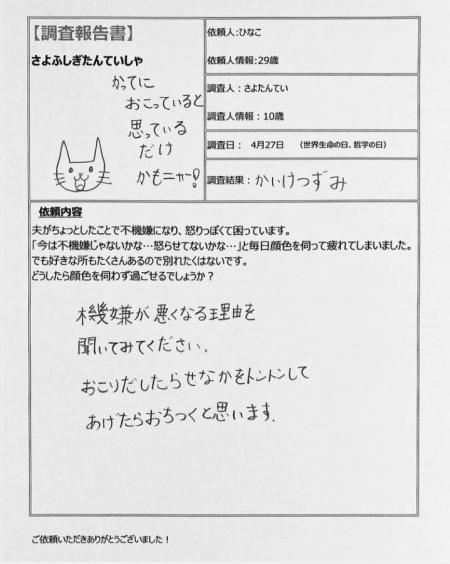 【調査報告書】
さよふしぎたんていしゃ
かってに
おこっていると
思っている
だけ
かもニャー!
依頼人:ひなこ
依頼人情報:29歳
調査人:さよたんてい
調査人情報:10歳
調査日: 4月27日 (世界生命の日、哲学の日)
調査結果:かいけつずみ
依頼内容
夫がちょっとしたことで不機嫌になり、怒りっぽくて困っています。
「今は不機嫌じゃないかな…怒らせてないかな…」と毎日顔色を伺って疲れてしまいました。
でも好きな所もたくさんあるので別れたくはないです。
どうしたら顔色を伺わず過ごせるでしょうか?
機嫌が悪くなる理由を
聞いてみてください.
おこりだしたらせなかをトントンして
あげたらおちつくと思います.
ご依頼いただきありがとうございました!